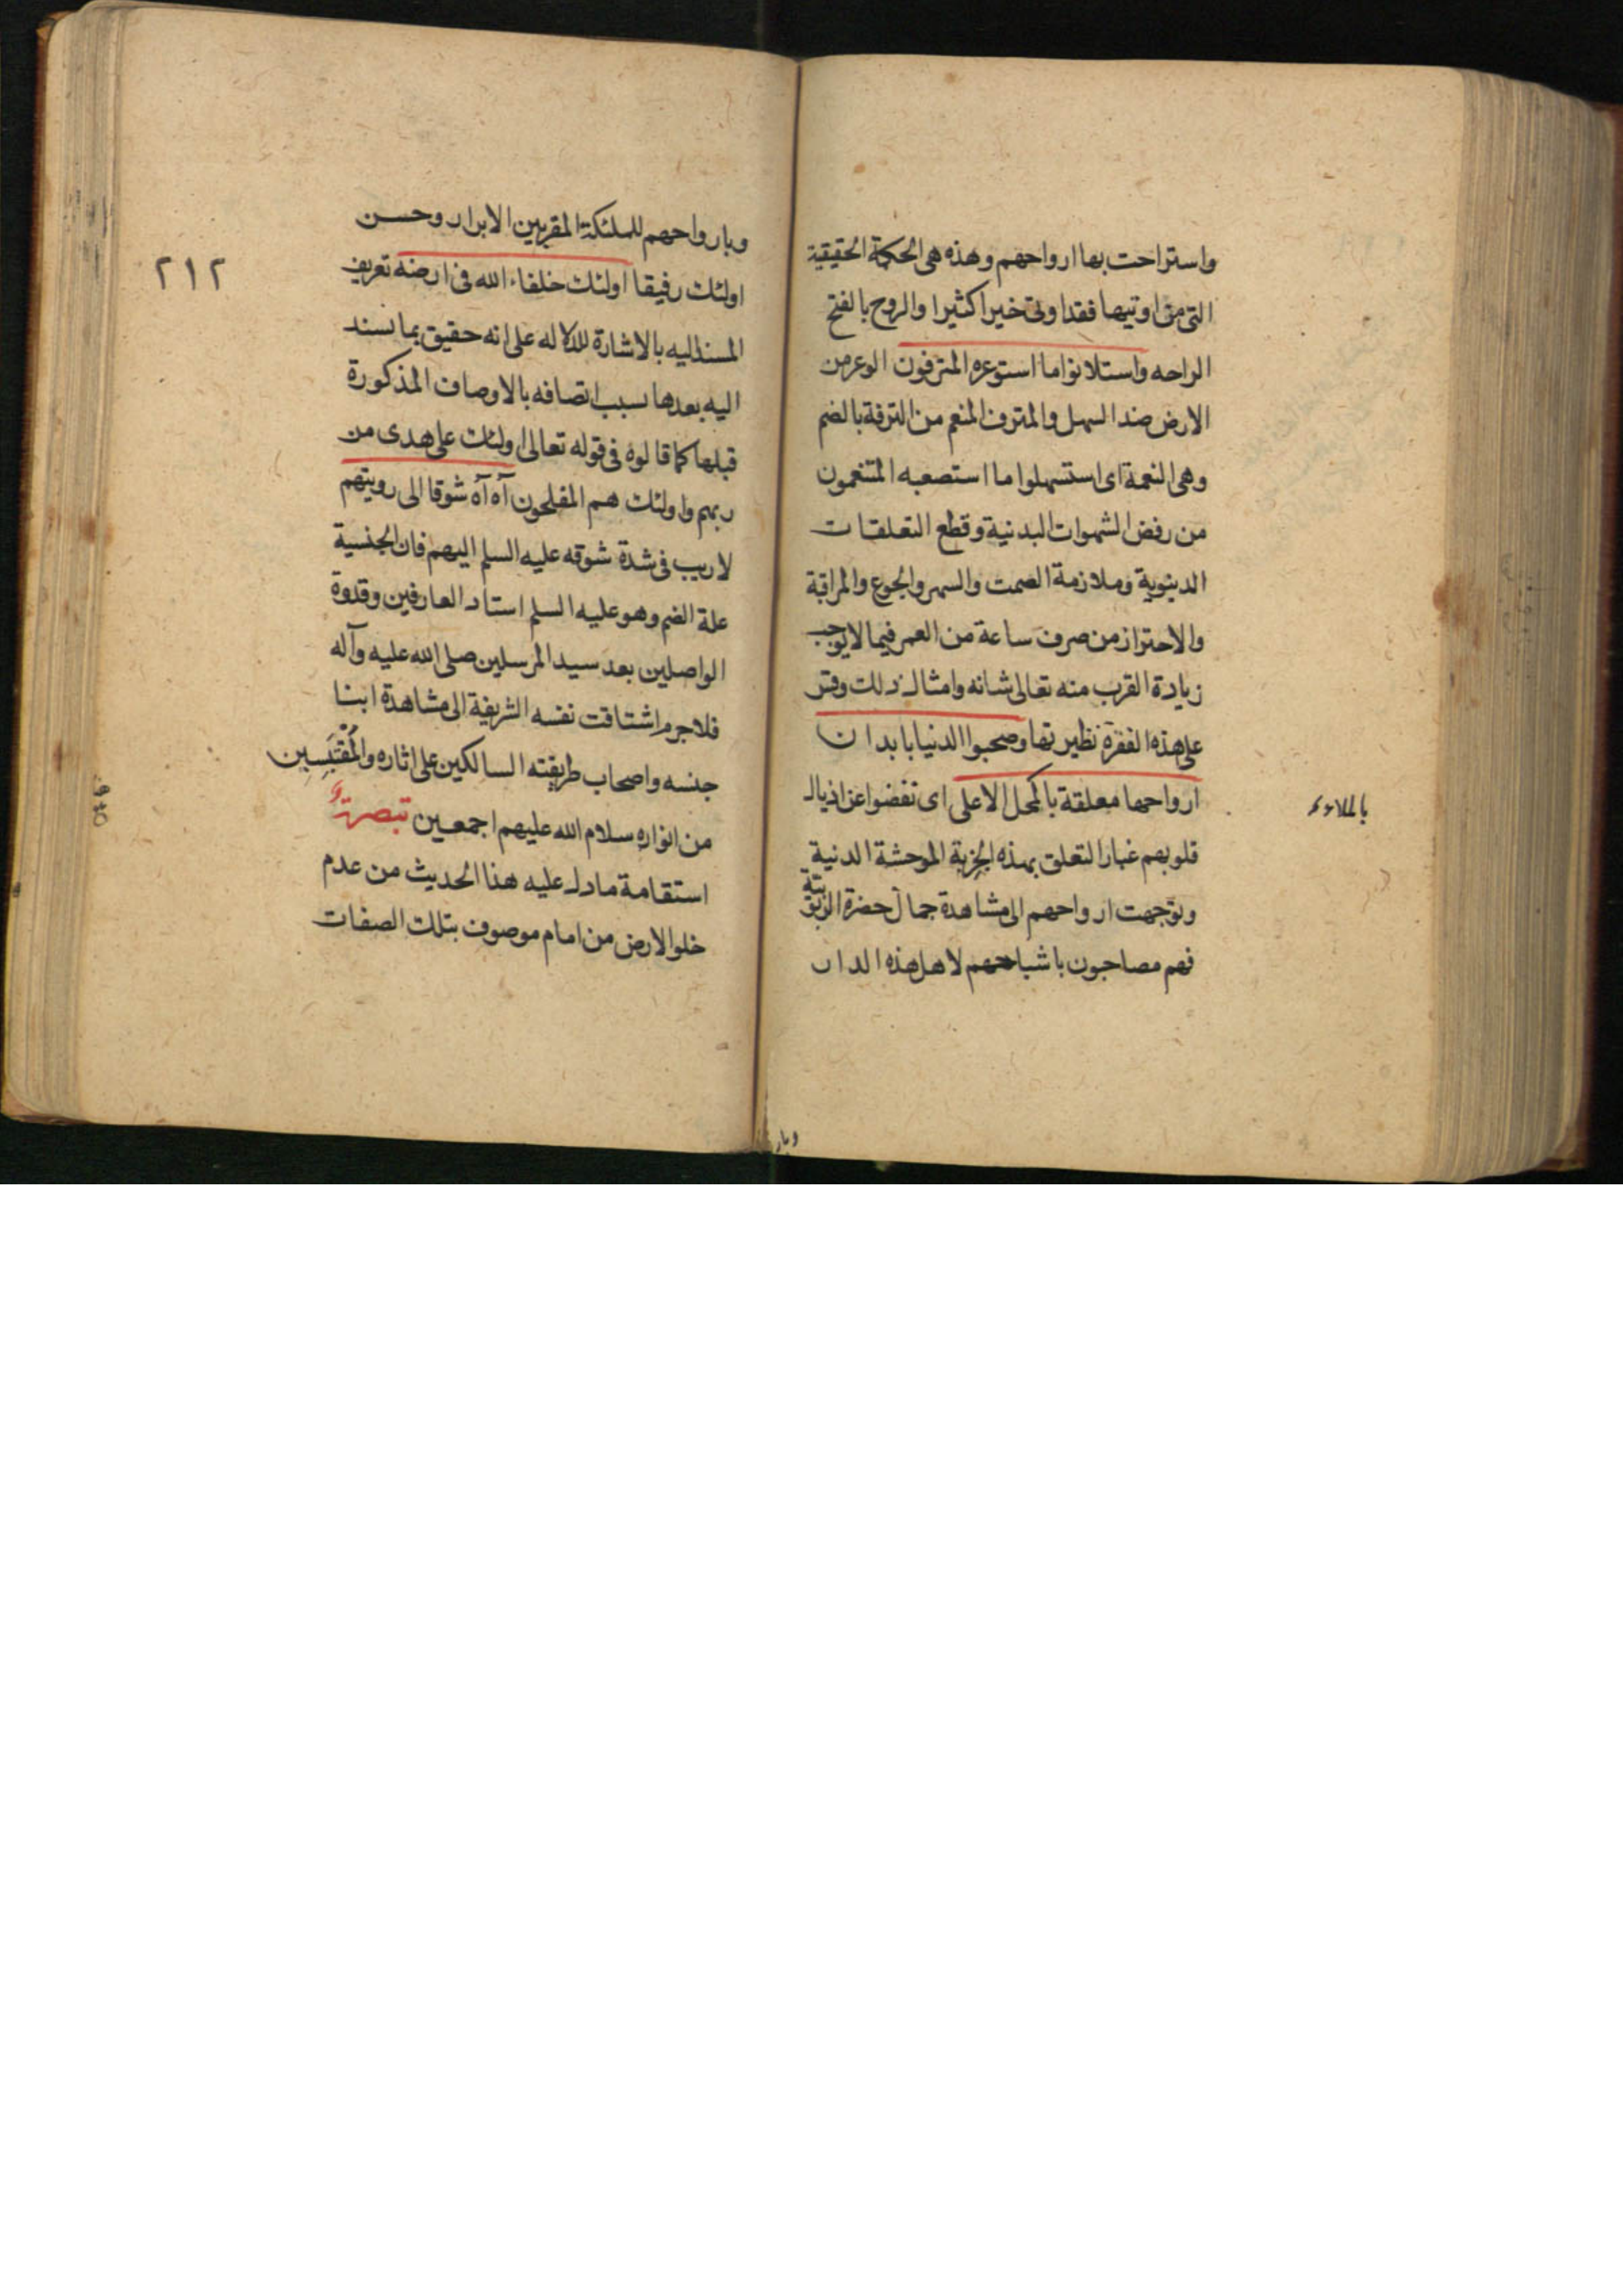 واستراحت بها ارواحهم وهذه هى الحكمة الحقيقية
التى من اوتيها فقد اوتى خيرا كثيرا والروح بالفتح
الراحه واستلانوا ما استوعره المترفون الوعر من
الارض ضد السهل والمترف المنعم من الترفة بالضم
وهى النعمة اى استسهلوا ما استصعبه المتنعمون
من رفض الشهوات البدنية وقطع التعلقات
الدينوية وملازمة الصمت والسهر والجوع والمراقبة
والاحتراز من صرف ساعة من العمر فيما لا يوجب
زيادة القرب منه تعالى شانه وامثال ذلك وقس
على هذه الفقرة نظيرتها وصحبوا الدنيا بابدان
ارواحها معلقة بالمحل الاعلى اى نفضوا عن اذيال
بالملاء
قلوبهم غبار التعلق بهذه الخربة الموحشة الدنية
وتوجهت ارواحهم الى مشاهدة جمال حضرة الربوبية
فهم مصاحبون باشباحهم لاهل هذه الدار
وبار
٢١٢
وبارواحهم للملئكة المقربين الابرار وحسن
اولئك رفيقا اولئك خلفاء الله فى ارضه تعريف
المسند اليه بالاشارة للدلاله على انه حقيق بما يسند
اليه بعدها بسبب اتصافه بالاوصاف المذكورة
قبلها كما قالوه فى قوله تعالى اولئك على هدى من
ربهم واولئك هم المفلحون آه آه شوقا الى رويتهم
لا ريب فى شدة شوقه عليه السلم اليهم فان الجنسية
علة الضم وهو عليه السلم استاد العارفين وقدوة
الواصلين بعد سيد المرسلين صلى الله عليه وآله
فلا جرم اشتاقت نفسه الشريفة الى مشاهدة ابنا
جنسه واصحاب طريقته السالكين على اثاره والمقتبسين
من انواره سلام الله عليهم اجمعين تبصرة
استقامة ما دل عليه هذا الحديث من عدم
خلو الارض من امام موصوف بتلك الصفات